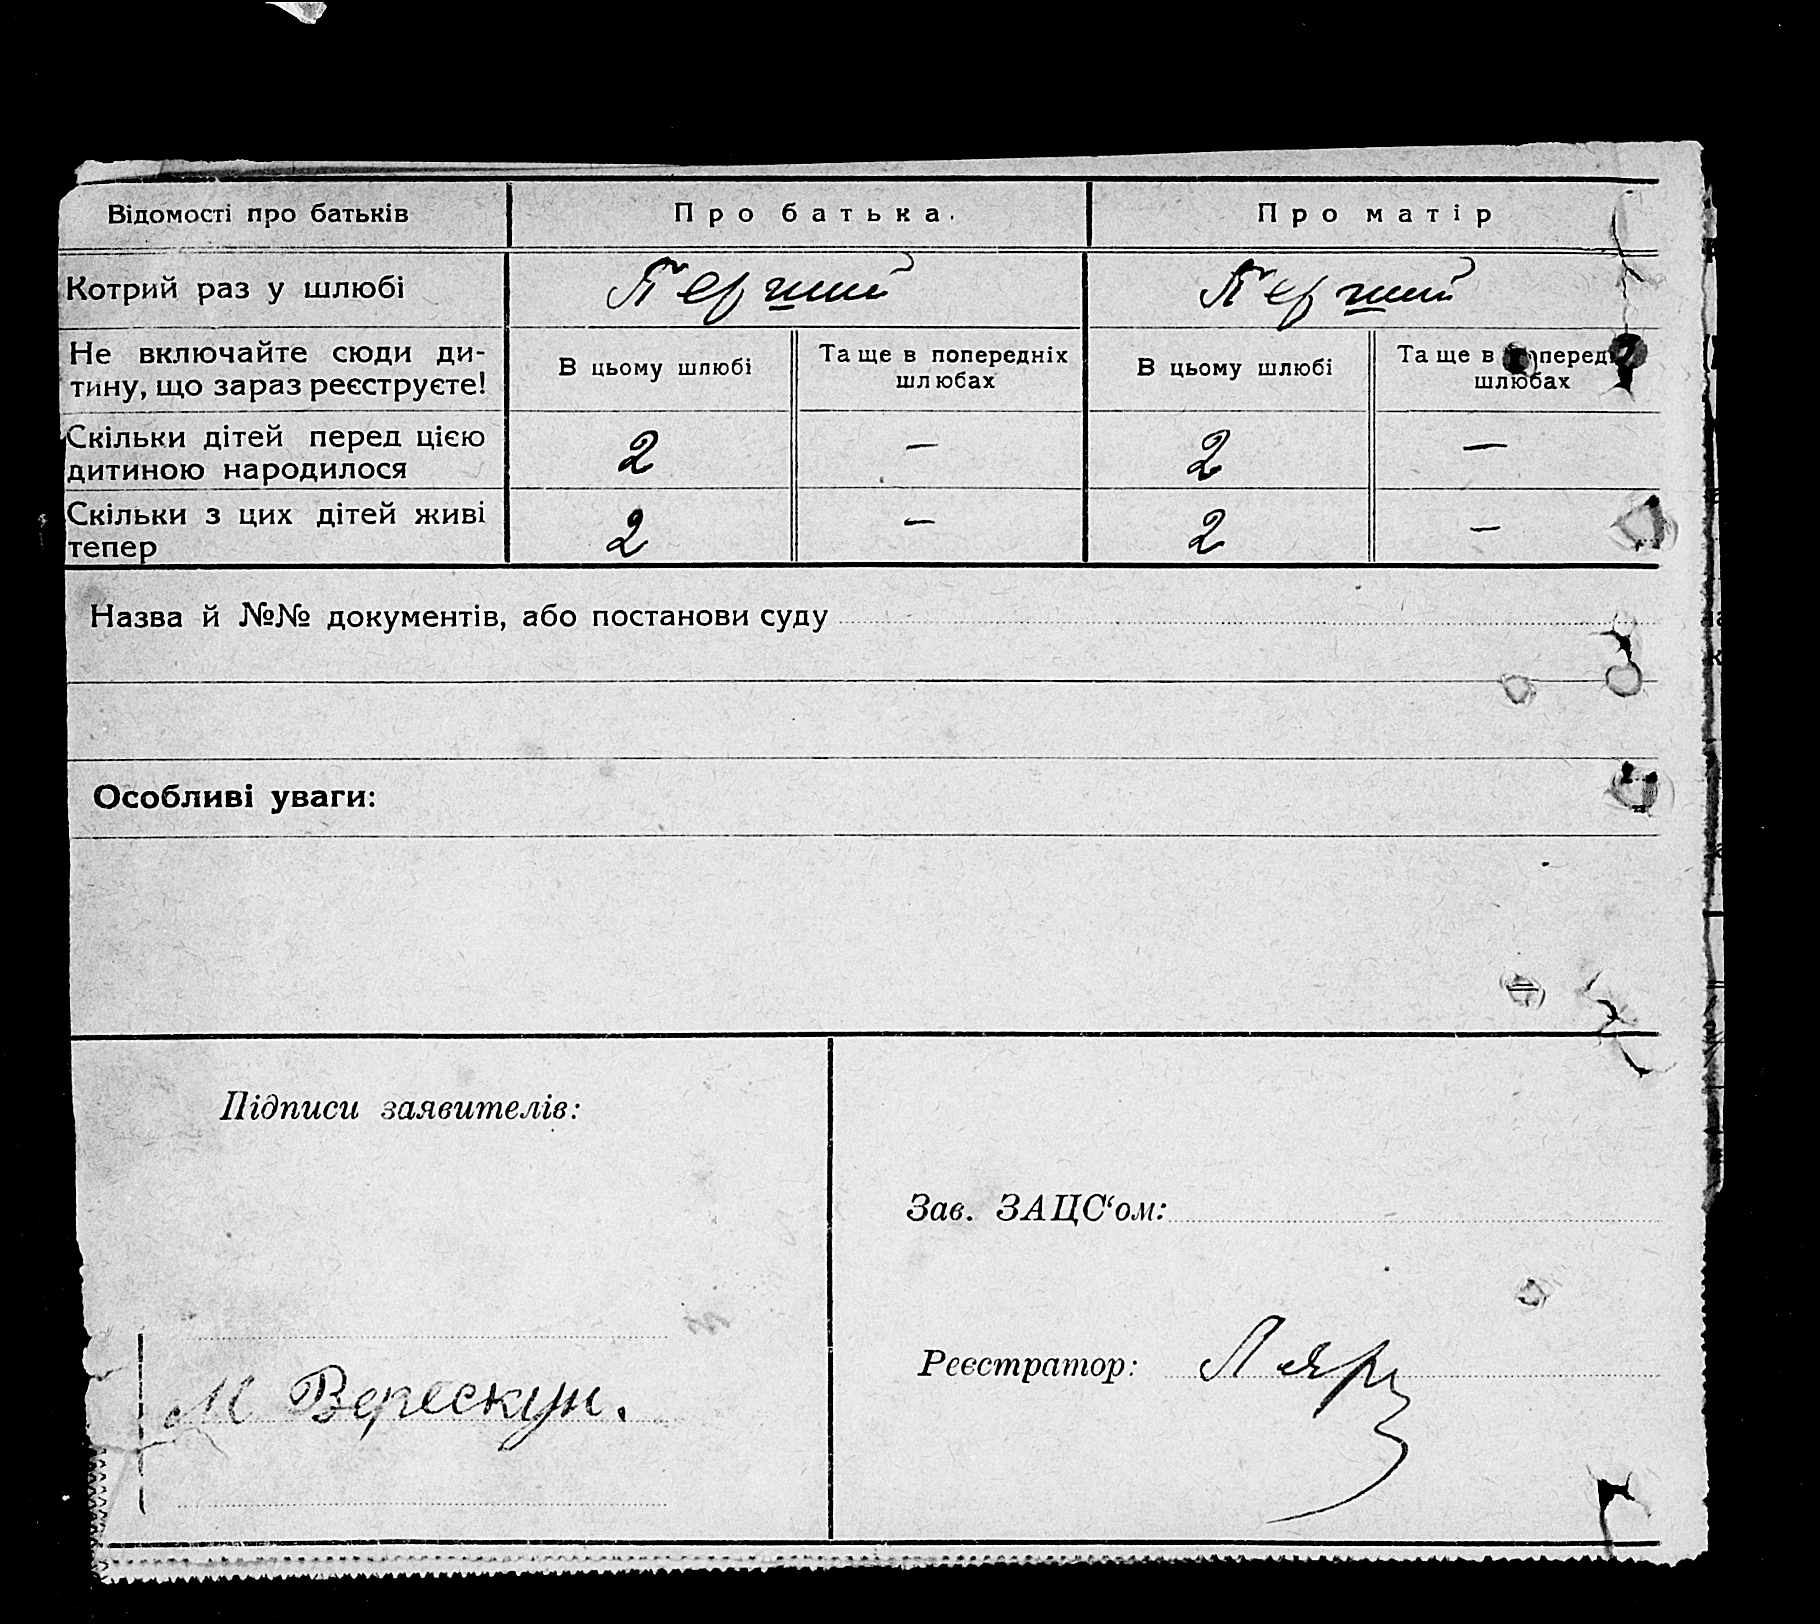 Відомості про батьків Про батька. Про матір
Котрий раз у шлюбі Перший Перший
Не включайте сюди ди-
тину, що зараз реєструєте!
В цьому шлюбі
Та ще в попередніх
шлюбах
В цьому шлюбі
Та ще в
шлюбах
Скільки дітей перед цією
дитиною народилося
2 — 2 —
Скільки з цих дітей живі
тепер
2 — 2 —
Назва й №№ документів, або постанови суду
Особливі уваги:
Підписи заявителів:
Зав. ЗАЦС‘ом:
Реєстратор:
М Верескун.